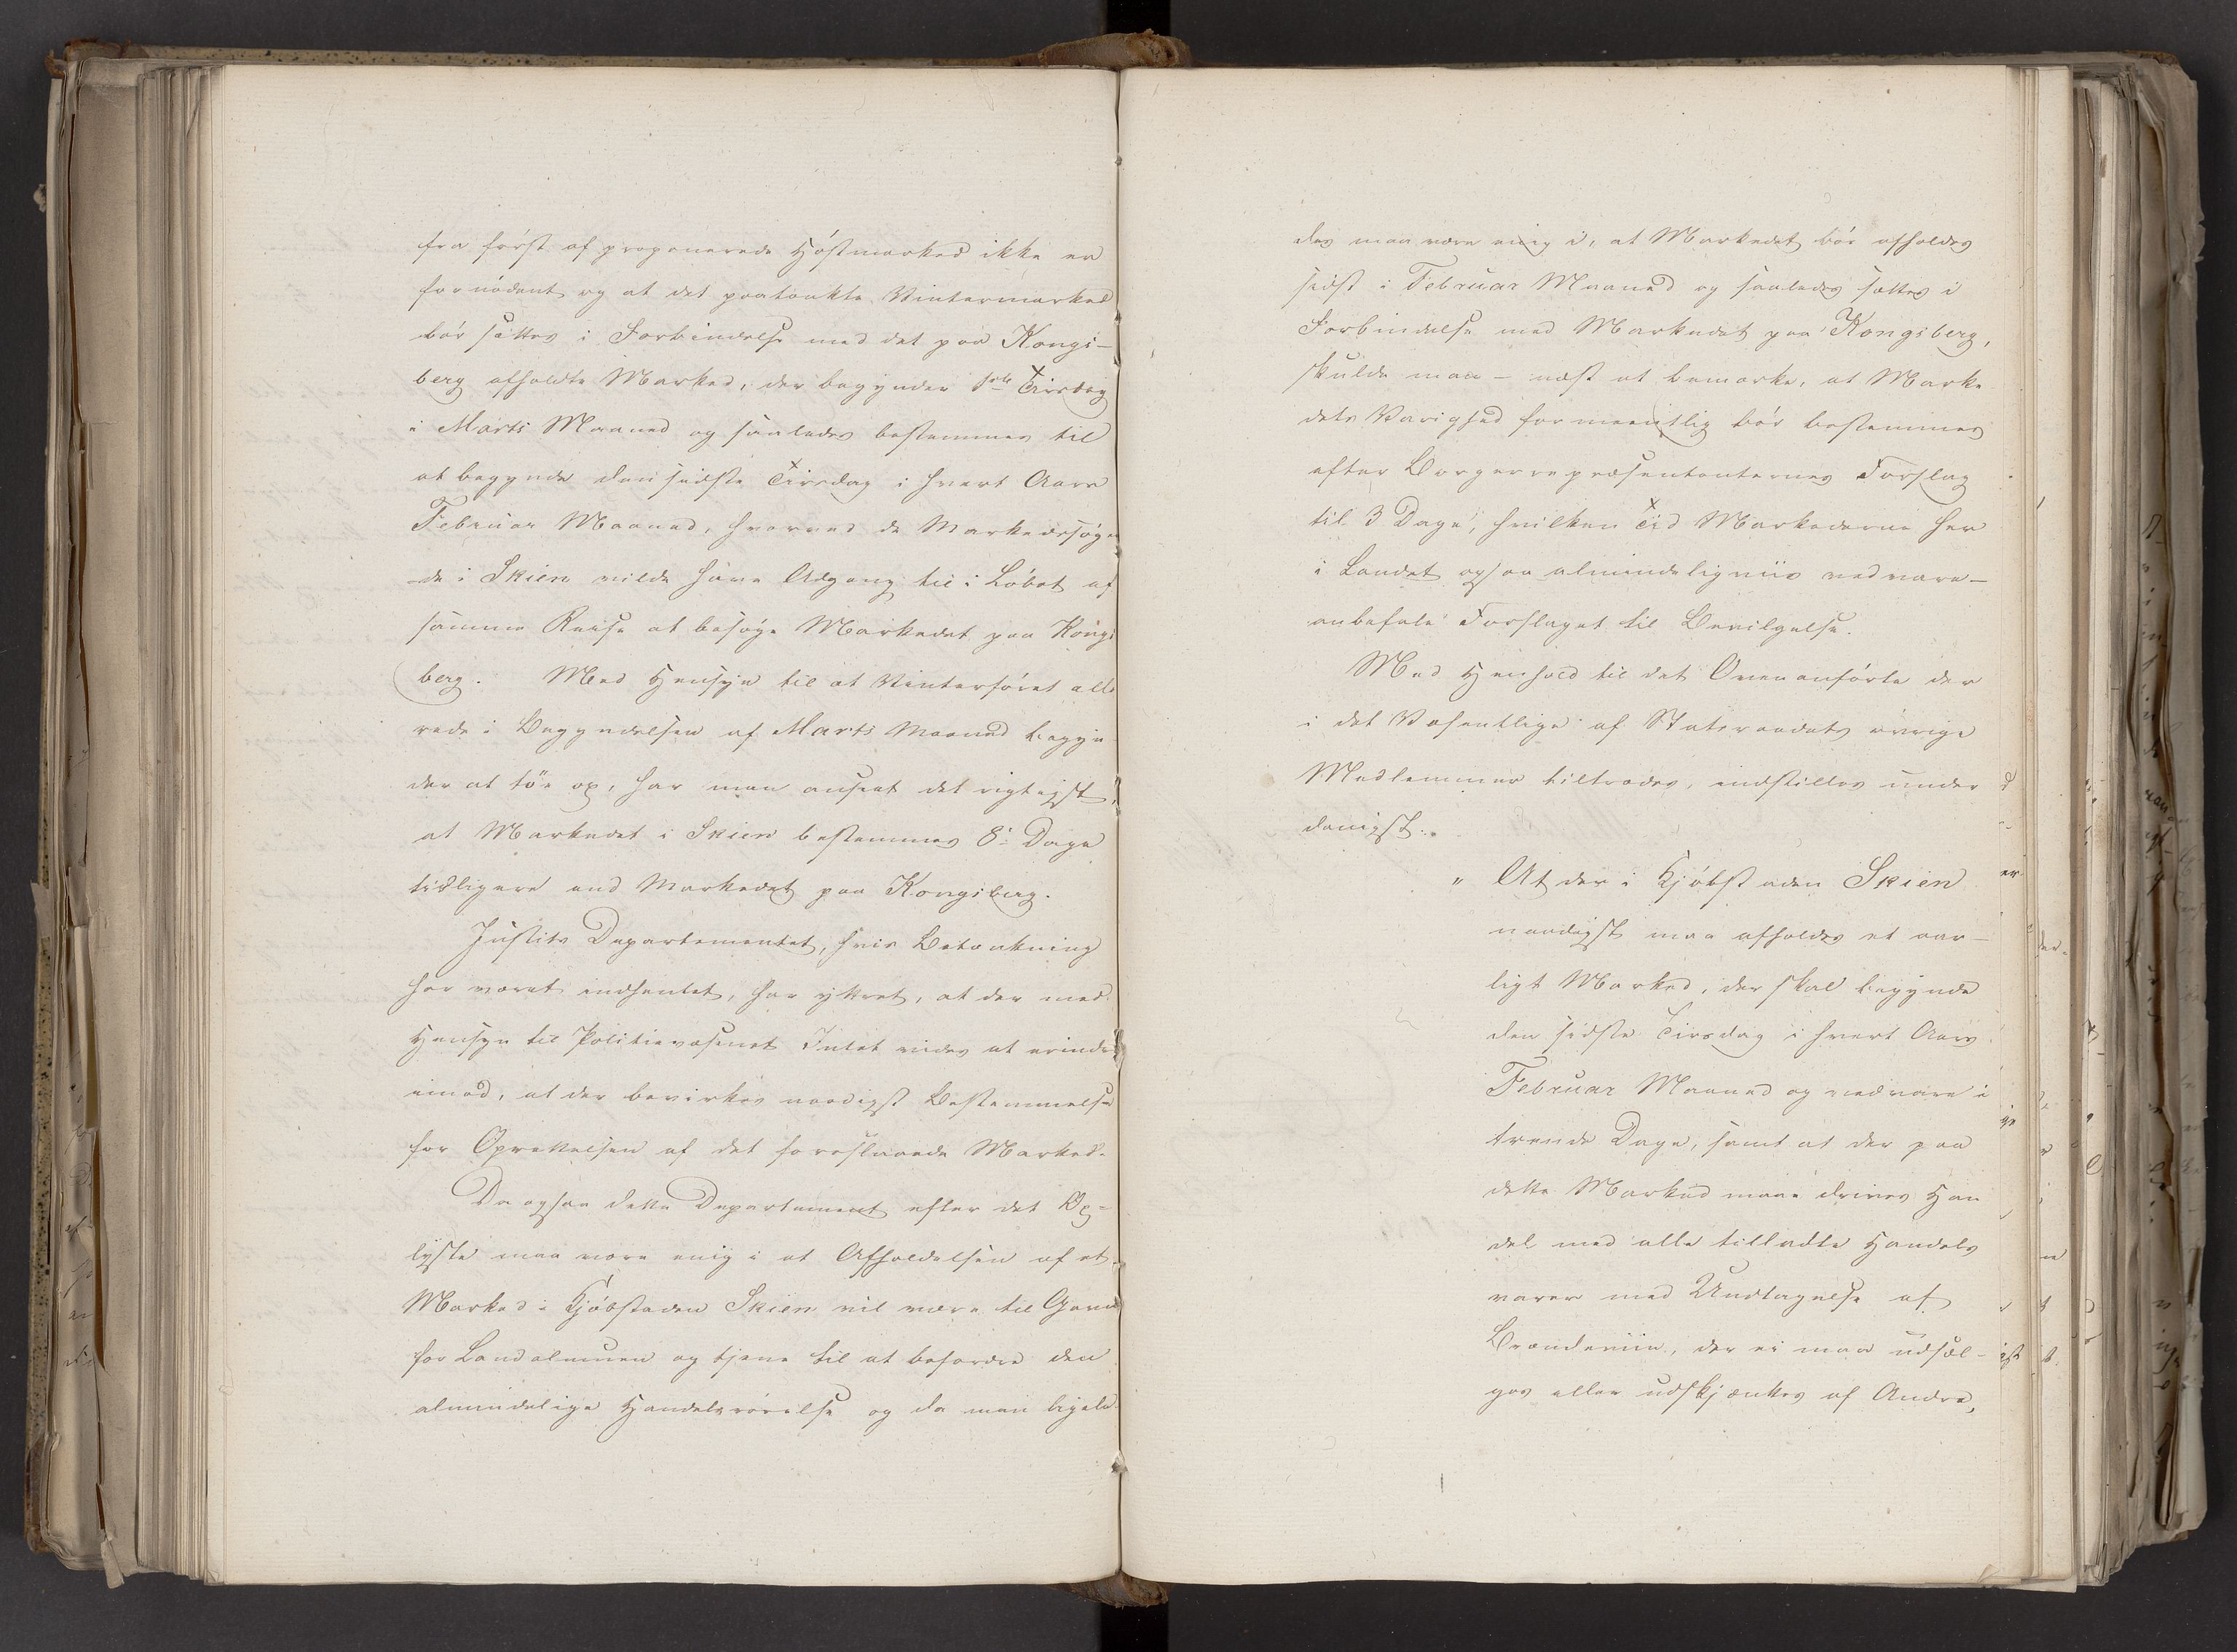 fra først af proponerede Høstmarked ikke er
fornødent og at det paatænkte Vintermarked
bør sættes i Forbindelse med det paa Kongs-
berg afholdte Marked, der begynder 1ste Tirsdag
i Marts Maaned og saaledes bestemmes til
at begynde den sidste Tirsdag i hvert Aars
Februar Maaned, hvorved de Markedssøgen
-de i Skien vilde have Adgang til i Løbet af
samme Reise at besøge Markedet paa Kongs
berg. Med Hensyn til at Vinterføret alle
rede i Begyndelsen af Marts Maaned begyn
der at tøe op, har man anseet det rigtigst,
at Markedet i Skien bestemmes 8te Dage
tidligere end Markedet paa Kongsberg.
Justits Departementet, hvis Betænkning
har været indhentet, har yttret, at der med
Hensyn til Politievæsenet Intet vides at erindre
imod, at der bevirkes naadigst Bestemmelse
for Oprettelsen af det foreslaaede Marked.
Da ogsaa dette Departement efter det Op-
lyste maa være enig i at Afholdelsen af et
Marked i Kjøbstaden Skien vil være til Gavn
for Landalmuen og tjene til at befordre den
almindelige Handelsrørelse og da man ligele
des maa være enig i, at Markedet bør afholdes
sidst i Februar Maaned og saaledes sættes i
Forbindelse med Markedet paa Kongsberg,
skulde man - næst at bemærke, at Marke
dets Varighed formeentlig bør bestemmes
efter Borgerrepræsentanternes Forslag
til 3 Dage, hvilken Tid Markederne her
i Landet ogsaa almindeligviis vedvare -
anbefale Forslaget til Bevilgelse.
Med Henhold til det Ovenanførte der
i det Væsentlige af Statsraadets øvrige
Medlemmer tiltrædes, indstilles under
danigst:
" At der i Kjøbstaden Skien
naadigst maa afholdes et aar-
ligt Marked, der skal begynde
den sidste Tirsdag i hvert Aars
Februar Maaned og vedvare i
trende Dage, samt at der paa
dette Marked maae drives Han
del med alle tilladte Handels
varer med Undtagelse af
Brændeviin, der ei maa udsæl-
ges eller udskjænkes af Andre,